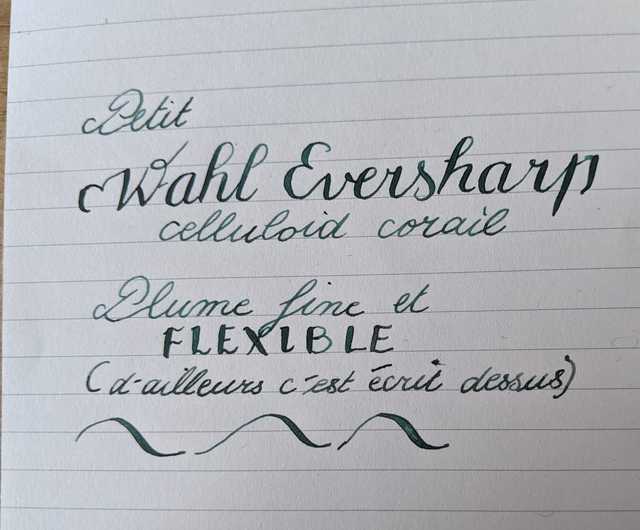 Petit
Wahl Eversharp
celluloid corail
Plume fine et
FLEXIBLE
(d'ailleurs c'est écrit dessus)